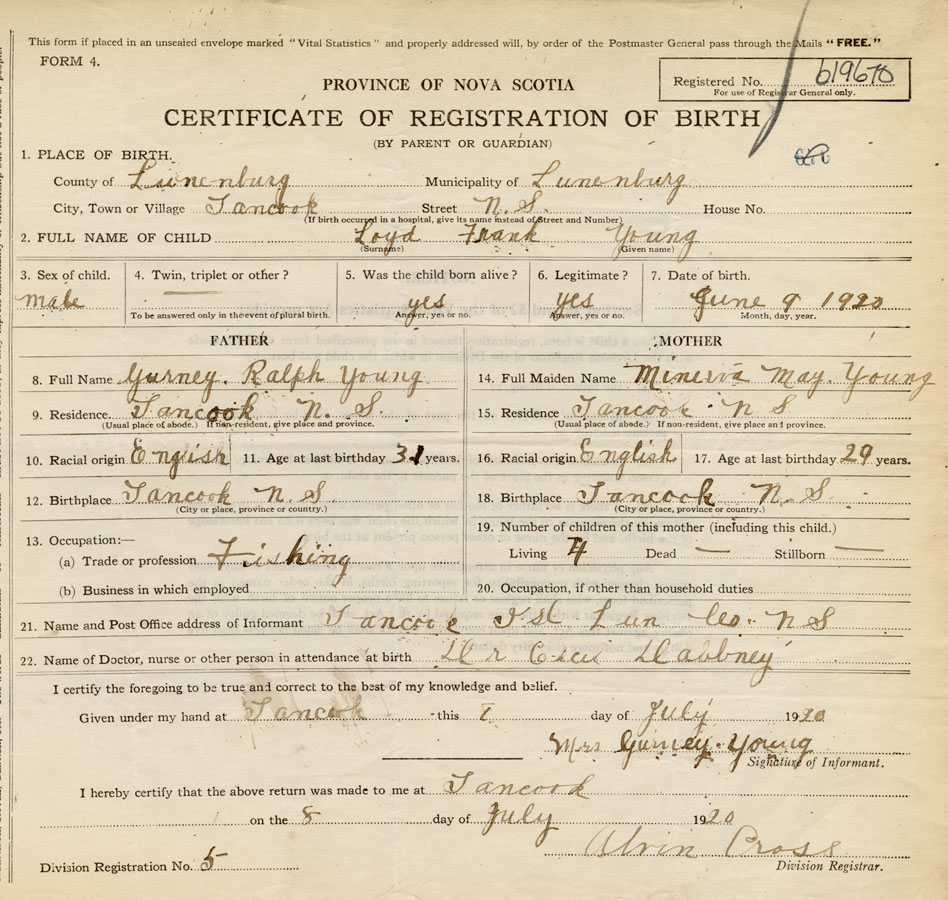 This form if placed in an unsealed envelope marked "Vital Statistics" and properly addressed will, by order of the Postmaster General pass through the Mails "FREE."
FORM 4.
Registered No. 619670
For use of Registrar General only.
PROVINCE OF NOVA SCOTIA
CERTIFICATE OF REGISTRATION OF BIRTH
(BY PARENT OR GUARDIAN)
1. PLACE OF BIRTH.
County of Lunenburg Municipality of Lunenburg
City, Town or Village Tancook Street N.S. House No.
(If birth occurred in a hospital, give its name instead of Street and Number)
2. FULL NAME OF CHILD Loyd Frank Young
(Surname) (Given name)
3. Sex of child. 4. Twin, triplet or other? 5. Was the child born alive? 6. Legitimate? 7. Date of birth.
male yes yes June 9 1920
To be answered only in the event of plural birth. Answer, yes or no. Answer, yes or no. Month, day, year.
FATHER MOTHER
8. Full Name Gurney. Ralph Young 14. Full Maiden Name Minerva May. Young
9. Residence. Tancook N. S. 15. Residence Tancook N S
(Usual place of abode.) If non-resident, give place and province. (Usual place of abode.) If non-resident, give place and province.
10. Racial origin English 11. Age at last birthday 31 years. 16. Racial origin English 17. Age at last birthday 29 years.
12. Birthplace Tancook N. S. 18. Birthplace Tancook N. S
(City or place, province or country.) (City or place, province or country.)
13. Occupation:— 19. Number of children of this mother (including this child.)
(a) Trade or profession Fishing Living 4 Dead — Stillborn —
(b) Business in which employed 20. Occupation, if other than household duties
21. Name and Post Office address of Informant Tancook Isl Lun Co. N S
22. Name of Doctor, nurse or other person in attendance at birth Dr
I certify the foregoing to be true and correct to the best of my knowledge and belief.
Given under my hand at Tancook this day of July 1920
Mrs Gurney. Young
Signature of Informant.
I hereby certify that the above return was made to me at Tancook
on the 8 day of July 1920
Alvin Cross
Division Registration No. 5 Division Registrar.